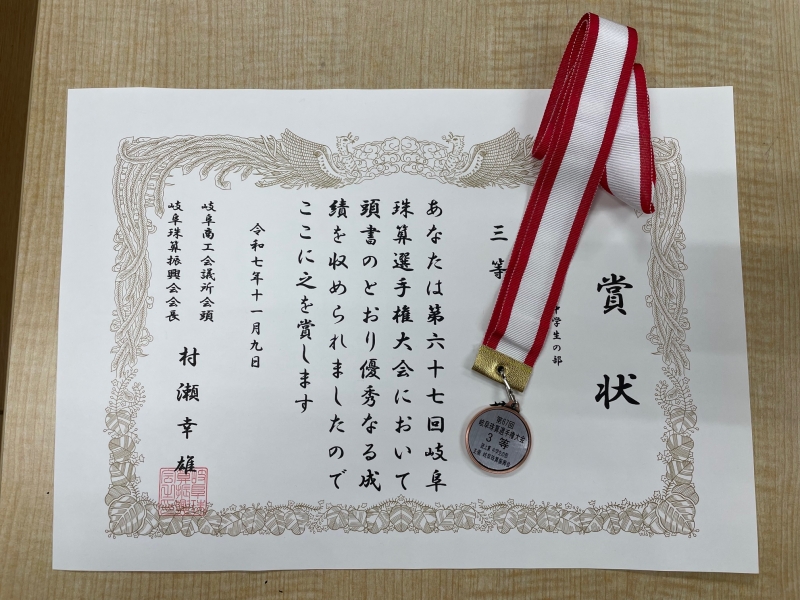 賞状
中学生の部
三等
あなたは第六十七回岐阜
珠算選手権大会において
頭書のとおり優秀なる成
績を収められましたので
ここに之を賞します
令和七年十一月九日
岐阜商工会議所会頭
岐阜珠算振興会会長
村瀬幸雄
第67回
岐阜珠算選手権大会
3等
主催 岐阜珠算振興会